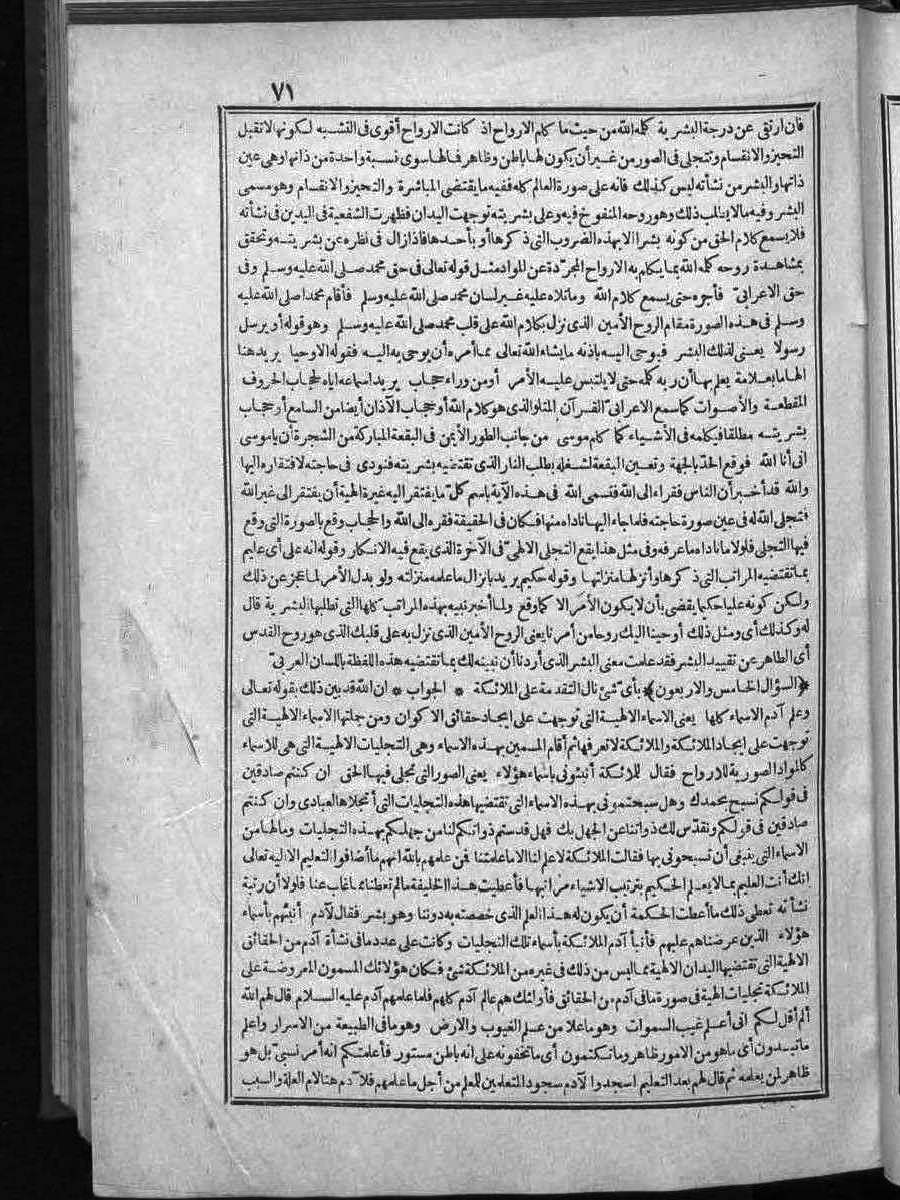 ٧١
فان ارتقى عن درجة البشرية كلمه الله من حيث ما كلم الارواح اذ كانت الارواح أقوى فى التشبه لكونها لا تقبل
التحيز والانقسام وتتجلى فى الصور من غير أن يكون لها باطن وظاهر فمالها سوى نسبة واحدة من ذاتها وهى عين
ذاتها والبشر من نشأته ليس كذلك فانه على صورة العالم كله ففيه ما يقتضى المباشرة والتحيز والانقسام وهو مسمى
البشر وفيه مالا يطلب ذلك وهو روحه المنفوخ فيه وعلى بشريته توجهت اليدان فظهرت الشفعية فى اليدين فى نشأته
فلا يسمع كلام الحق من كونه بشرا الا بهذه الضروب التى ذكرها أو بأحدها فاذا زال فى نظره عن بشريته وتحقق
بمشاهدة روحه كلمه الله بما يكلم به الارواح المجردة عن المواد مثل قوله تعالى فى حق محمد صلى الله عليه وسلم وفى
حق الاعرابىّ فأجره حتى يسمع كلام الله وما تلاه عليه غير لسان محمد صلى الله عليه وسلم فأقام محمدا صلى الله عليه
وسلم فى هذه الصورة مقام الروح الأمين الذى نزل بكلام الله على قلب محمد صلى الله عليه وسلم وهو قوله أو يرسل
رسولا يعنى لذلك البشر فيوحى اليه باذنه ما يشاء الله تعالى مما أمره أن يوحى به اليه فقوله الا وحيا يريد هنا
الهاما بعلامة يعلم بها أن ربه كلمه حتى لا يلتبس عليه الأمر أو من وراء حجاب يريد اسماعه اياه لحجاب الحروف
المقطعة والأصوات كما سمع الاعرابىّ القرآن المتلو الذى هو كلام الله أو حجاب الآذان أيضا من السامع أو حجاب
بشريته مطلقا فيكلمه فى الأشياء كما كلم موسى من جانب الطور الأيمن فى البقعة المباركة من الشجرة أن ياموسى
انى أنا الله فوقع الحدّ بالجهة وتعين البقعة لشغله بطلب النار الذى تقتضيه بشريته فنودى فى حاجته لافتقاره اليها
والله قد أخبر أن الناس فقراء الى الله فتسمى الله فى هذه الآية باسم كلّ ما يفتقر اليه غيرة الهية أن يفتقر الى غير الله
فتجلى الله له فى عين صورة حاجته فلما جاء اليها ناداه منها فكان فى الحقيقة فقره الى الله والحجاب وقع بالصورة التى وقع
فيها التجلى فلولا ما ناداه ما عرفه وفى مثل هذا يقع التجلى الالهىّ فى الآخرة الذى يقع فيه الانكار وقوله انه علىّ أى عليم
بما تقتضيه المراتب التى ذكرها وأنزلها منزلتها وقوله حكيم يريد بانزال ما علمه منزلته ولو بدل الأمر لما عجز عن ذلك
ولكن كونه عليا حكيما يقضى بأن لا يكون الأمر الا كما وقع ولما أخبر نبيه بهذه المراتب كلها التى تطلبها البشرية قال
له وكذلك أى ومثل ذلك أوحينا اليك روحا من أمرنا يعنى الروح الأمين الذى نزل به على قلبك الذى هو روح القدس
أى الطاهر عن تقييد البشر فقد علمت معنى البشر الذى أردنا أن نبينه لك بما تقتضيه هذه اللفظة باللسان العربىّ
﴿السؤال الخامس والاربعون﴾ بأىّ شئ نال التقدمة على الملائكة * الجواب * ان الله قد بين ذلك بقوله تعالى
وعلم آدم الاسماء كلها يعنى الاسماء الالهية التى توجهت على ايجاد حقائق الاكوان ومن جملتها الاسماء الالهية التى
توجهت على ايجاد الملائكة والملائكة لا تعرفها ثم أقام المسمين بهذه الاسماء وهى التجليات الالهية التى هى للاسماء
كالمواد الصورية للارواح فقال للملائكة أنبئونى باسماء هؤلاء يعنى الصور التى تجلى فيها الحق ان كنتم صادقين
فى قولكم نسبح بحمدك وهل سبحتمونى بهذه الاسماء التى تقتضيها هذه التجليات التى أتجلاها لعبادى وان كنتم
صادقين فى قولكم ونقدّس لك ذواتنا عن الجهل بك فهل قدستم ذواتكم لنا من جهلكم بهذه التجليات ومالها من
الاسماء التى ينبغى أن تسبحونى بها فقالت الملائكة لا علم لنا الا ما علمتنا فمن علمهم بالله انهم ما أضافوا التعليم الا اليه تعالى
انك أنت العليم بما لا يعلم الحكيم بترتيب الاشياء مراتبها فأعطيت هذا الخليفة مالم تعطنا مما غاب عنا فلولا أن رتبة
نشأته تعطى ذلك ما أعطت الحكمة أن يكون له هذا العلم الذى خصصته به دوننا وهو بشر فقال لآدم أنبئهم بأسماء
هؤلاء الذين عرضناهم عليهم فأنبأ آدم الملائكة بأسماء تلك التجليات وكانت على عدد ما فى نشأة آدم من الحقائق
الالهية التى تقتضيها اليدان الالهية مما ليس من ذلك فى غيره من الملائكة شئ فكان هؤلائك المسمون المعروضة على
الملائكة تجليات الهية فى صورة ما فى آدم من الحقائق فأولئك هم عالم آدم كلهم فلما علمهم آدم عليه السلام قال لهم الله
ألم أقل لكم انى أعلم غيب السموات وهو ما علا من علم الغيوب والارض وهو ما فى الطبيعة من الاسرار وأعلم
ما تبدون أى ما هو من الامور ظاهر وما تكتمون أى ما تخفونه على انه باطن مستور فأعلمتكم انه أمر نسبىّ بل هو
ظاهر لمن يعلمه ثم قال لهم بعد التعليم اسجدوا لآدم سجود المتعلمين للمعلم من أجل ما علمهم فلآدم هنا لام العلة والسبب